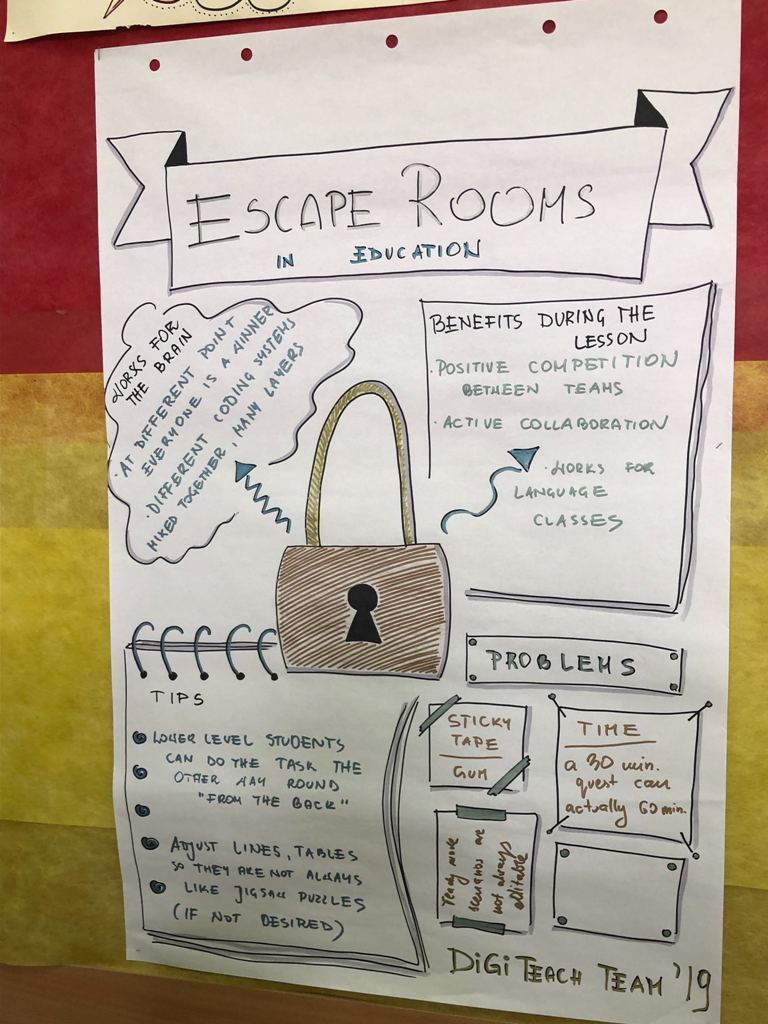 ESCAPE ROOMS
IN EDUCATION
WORKS FOR
THE BRAIN
· AT DIFFERENT POINT
EVERYONE IS A WINNER
· DIFFERENT CODING SYSTEMS
MIXED TOGETHER, MANY LAYERS
BENEFITS DURING THE
LESSON
· POSITIVE COMPETITION
BETWEEN TEAMS
· ACTIVE COLLABORATION
· WORKS FOR
LANGUAGE
CLASSES
TIPS
LOWER LEVEL STUDENTS
CAN DO THE TASK THE
OTHER WAY ROUND
"FROM THE BACK"
ADJUST LINES, TABLES
SO THEY ARE NOT ALWAYS
LIKE JIGSAW PUZZLES
(IF NOT DESIRED)
PROBLEMS
STICKY
TAPE
GUM
TIME
a 30 min.
quest can
actually 60 min.
ready made
scenarios are
not always
editable
DiGiTEACH TEAM '19